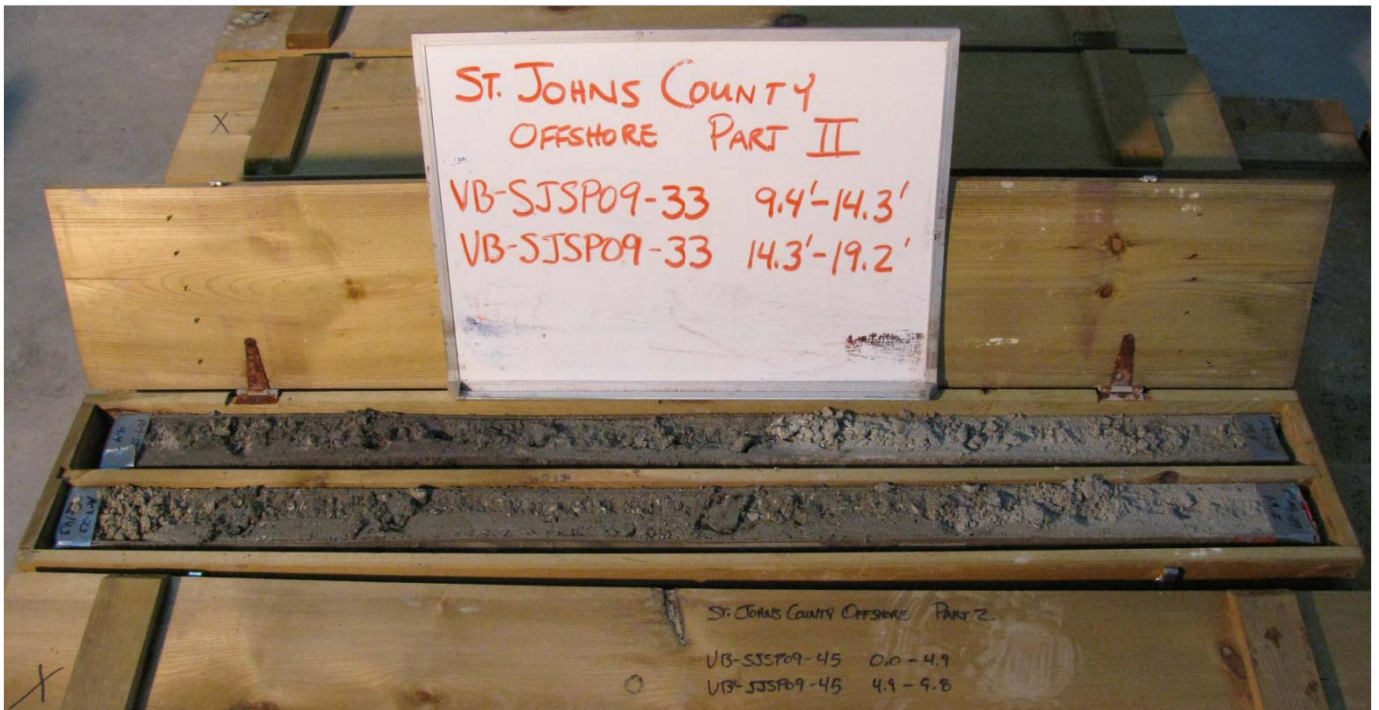 ST. JOHNS COUNTY
OFFSHORE PART II
VB-SJSP09-33 9.4'-14.3'
VB-SJSP09-33 14.3'-19.2'
X
ST. JOHNS COUNTY OFFSHORE PART 2
VB-SJSP09-45 0.0-4.9
VB-SJSP09-45 4.9-9.8
X